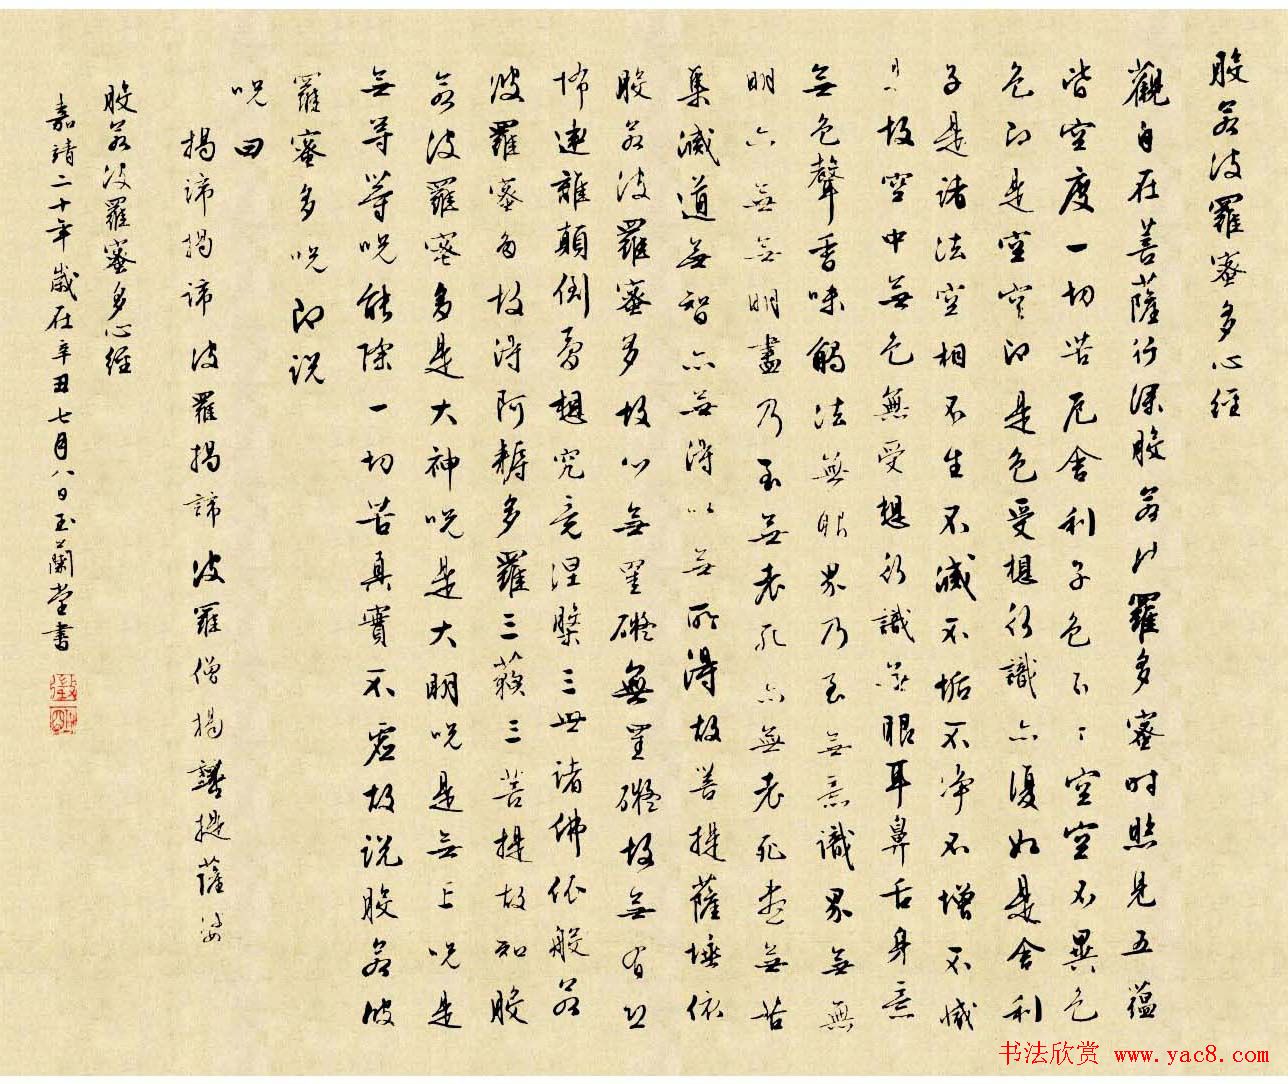 般若波羅蜜多心經
觀自在菩薩行深般若波羅多蜜時照見五蘊
皆空度一切苦厄舍利子色不異空空不異色
色即是空空即是色受想行識亦復如是舍利
子是諸法空相不生不滅不垢不净不增不減
是故空中無色無受想行識無眼耳鼻舌身意
無色聲香味觸法無眼界乃至無意識界無無
明亦無無明盡乃至無老死亦無老死盡無苦
集滅道無智亦無得以無所得故菩提薩埵依
般若波羅蜜多故心無罣礙無罣礙故無有恐
怖遠離顛倒夢想究竟涅槃三世諸佛依般若
波羅蜜多故得阿耨多羅三藐三菩提故知般
若波羅蜜多是大神咒是大明咒是無上咒是
無等等咒能除一切苦真實不虛故說般若波
羅蜜多咒即說
咒曰
揭諦揭諦波羅揭諦波羅僧揭諦菩提薩婆
般若波羅蜜多心經
嘉靖二十年歲在辛丑七月八日玉蘭堂書
徵明
书法欣赏 www.yac8.com